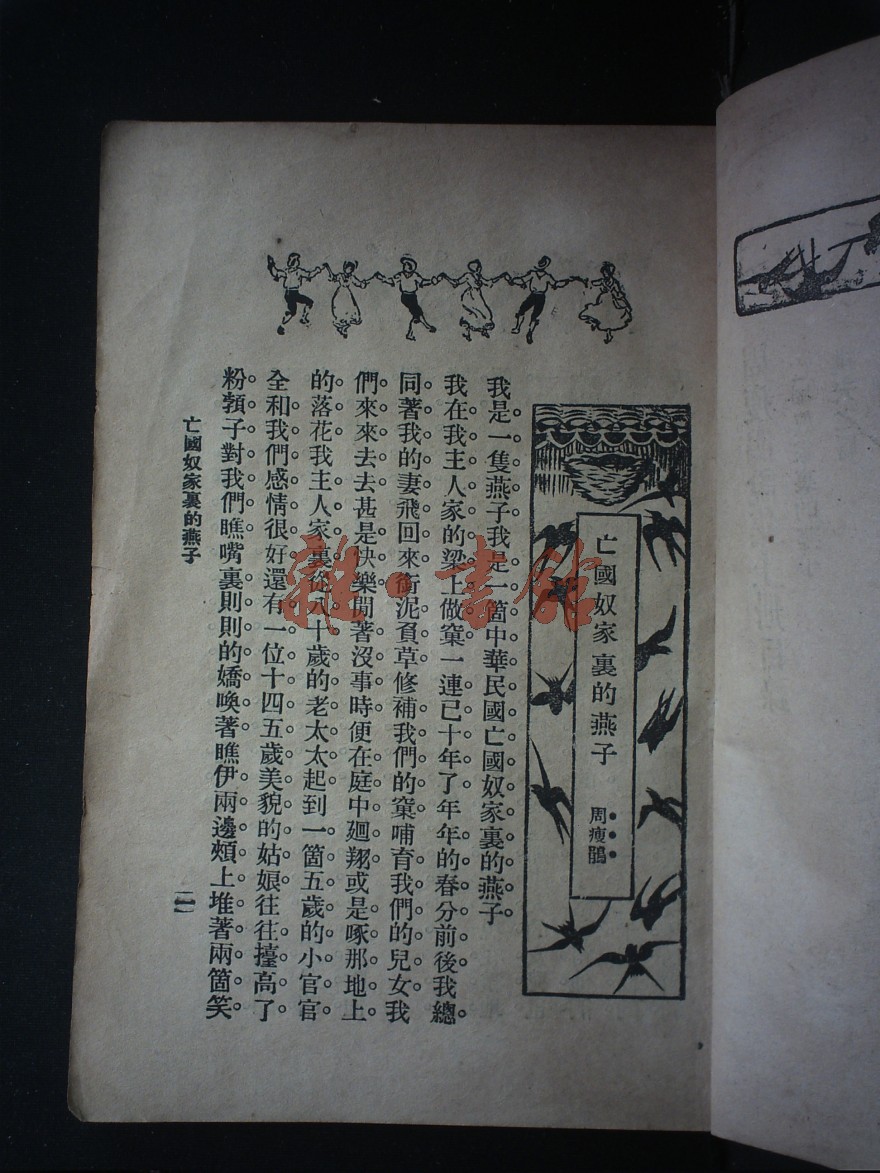 亡國奴家裏的燕子
周瘦鵑
我是一隻燕子我是一箇中華民國亡國奴家裏的燕子。
我在我主人家的梁上做窠一連已十年了年年的春分前後我總
同著我的妻飛回來銜泥負草修補我們的窠哺育我們的兒女我
們來來去去甚是快樂閒著沒事時便在庭中廻翔或是啄那地上
的落花我主人家裏從八十歲的老太太起到一箇五歲的小官官
全和我們感情很好還有一位十四五歲美貌的姑娘往往擡高了
粉頸子對我們瞧嘴裏則則的嬌喚著瞧伊兩邊頰上堆著兩箇笑
亡國奴家裏的燕子
一
雜·書館